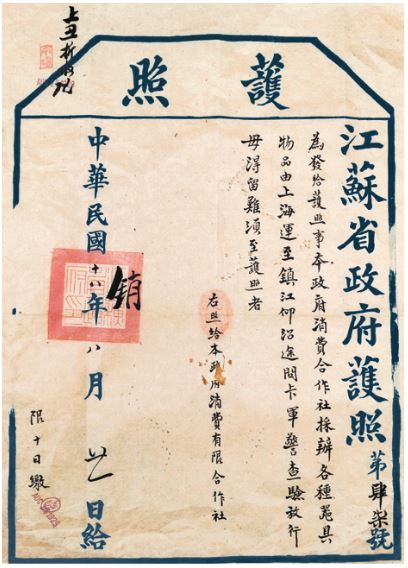 護照
江蘇省政府護照第肆柒號
為發給護照事本政府消費合作社採辦各種器具
物品由上海運至鎮江仰沿途關卡軍警查驗放行
毋得留難須至護照者
右照給本政府消費有限合作社
銷
中華民國十八年八月廿日給
限十日繳